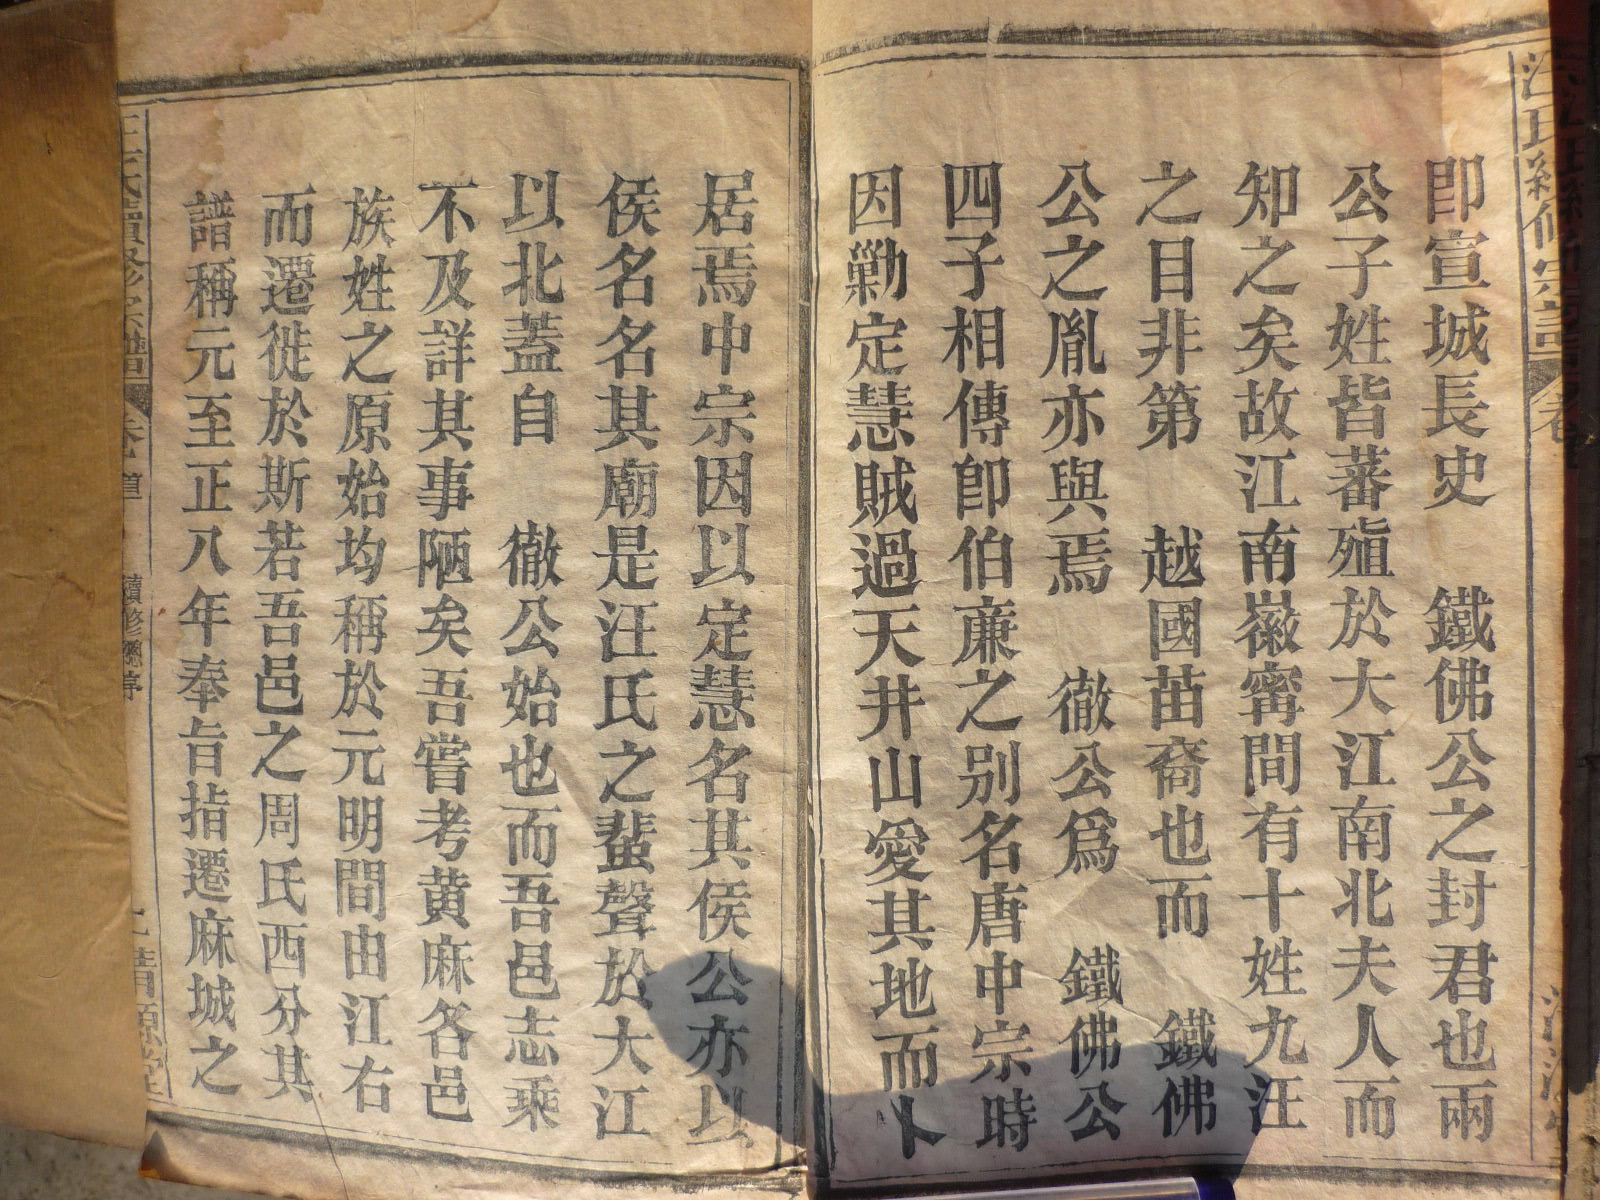 卽宣城長史　鐵佛公之封君也兩
公子姓皆蕃殖於大江南北夫人而
知之矣故江南徽寗間有十姓九汪
之目非第　越國苗裔也而　鐵佛
公之胤亦與焉　徹公爲　鐵佛公
四子相傳卽伯亷之别名唐中宗時
因勦定慧賊過天井山愛其地而卜
居焉中宗因以定慧名其侯公亦以
侯名名其廟是汪氏之蜚聲於大江
以北蓋自　徹公始也而吾邑志乘
不及詳其事陋矣吾嘗考黄麻各邑
族姓之原始均稱於元明間由江右
而遷徙於斯若吾邑之周氏西分其
譜稱元至正八年奉旨指遷麻城之
汪氏續修宗譜
卷首
續修總序